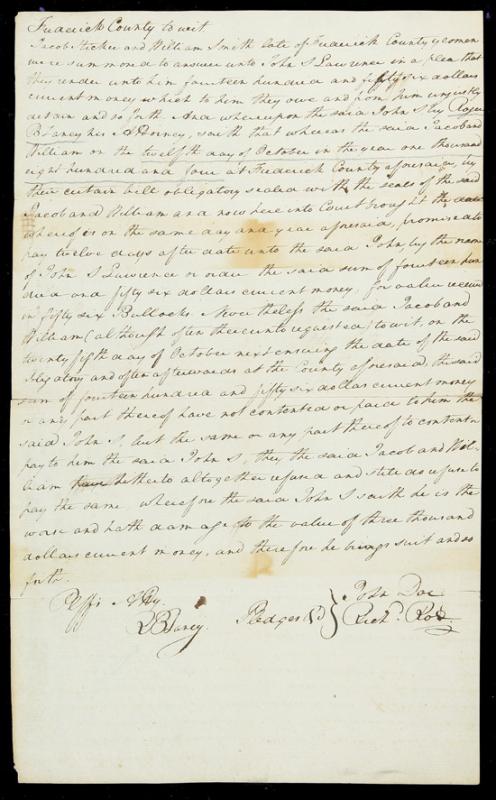 Frederick County to wit
Jacob Sticker and William Smith late of Frederick County yeomen
were summoned to answer unto John S Lawrence in a plea that
they render unto him fourteen hundred and fifty six dollars
current money which to him they owe and from him unjustly
detain and so forth And whereupon the said John S by Roger
B Taney his Attorney, saith that whereas the said Jacob and
William on the twelfth day of October in the year one thousand
eight hundred and four at Frederick County aforesaid, by
their certain bill obligatory sealed with the seals of the said
Jacob and William and now here into Court brought the date
whereof is on the same day and year aforesaid, promised to
pay twelve days after date unto the said John, by the name
of John S Lawrence or order the said sum of fourteen hun
dred and fifty six dollars current money, for value received
in fifty six Bullocks. Nevertheless the said Jacob and
William (although often thereunto requested) to wit, on the
twenty fifth day of October next ensuing the date of the said
obligatory and often afterwards at the County aforesaid, the said
sum of fourteen hundred and fifty six dollars current money
or any part thereof have not contented or paid to him the
said John S, but the same or any part thereof to content or
pay to him the said John S, they the said Jacob and Wil-
liam hitherto altogether refused and still do refuse to
pay the same wherefore the said John S saith he is the
worse and hath damage to the value of three thousand
dollars current money, and therefore he brings suit and so
forth.
Plffs Atty
R B Taney. Pledges &c } John Doe
Richd. Roe.